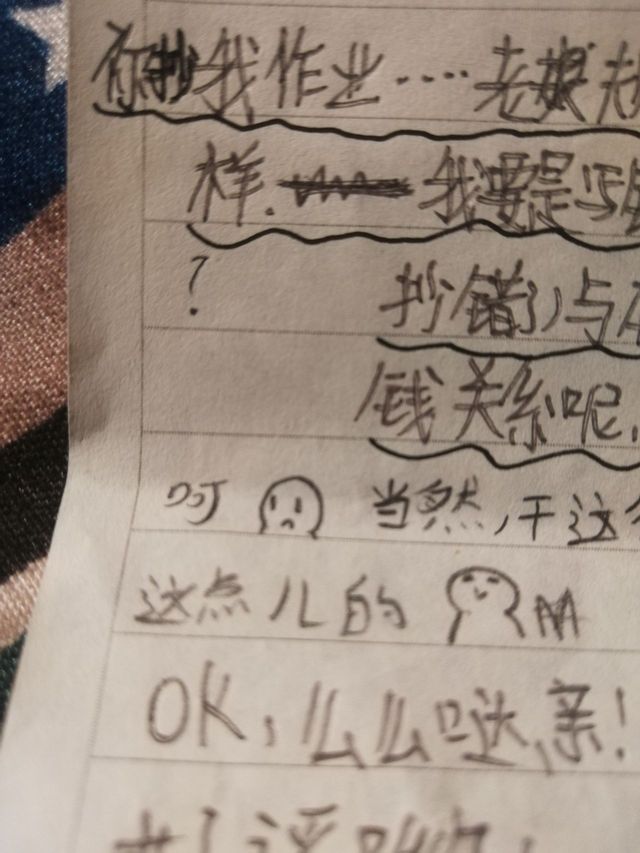 你抄我作业····老娘
样. 我要是写
?
抄错了与
钱关系呢,
呵 当然,干这
这点儿的
OK,么么哒,亲!